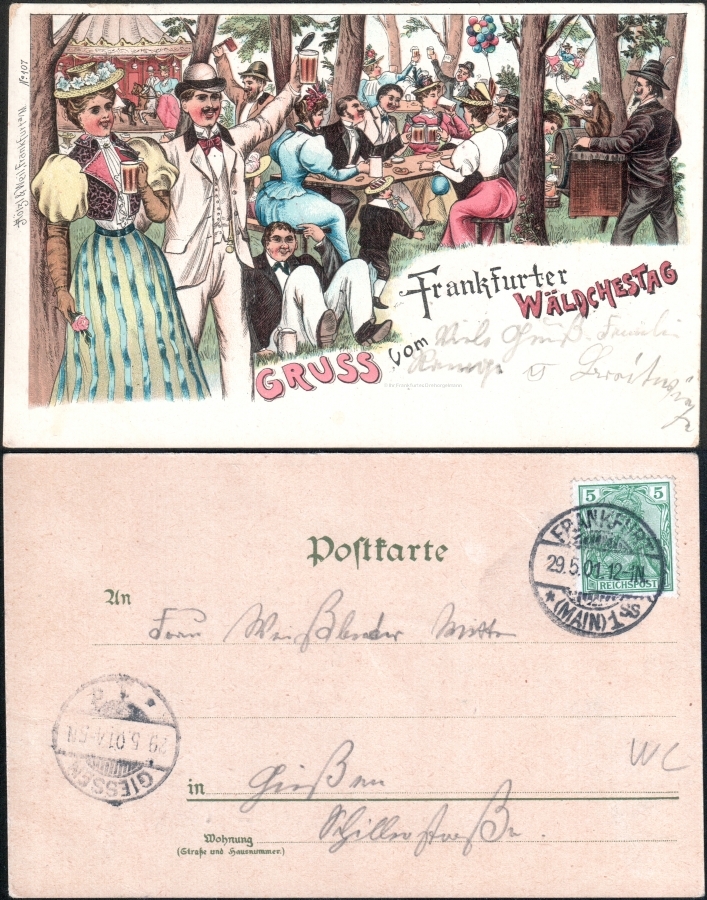 Hölzl & Weil, Frankfurt a/M. No 107
GRUSS vom Frankfurter WÄLDCHESTAG
Viele Grüße Familie
u
Postkarte
5 5
REICHSPOST
FRANKFURT
29.5.01.12-1N.
* (MAIN) 1 *
An
29.5.01.4-5N
GIESSEN
WC
in Gießen
Wohnung Schillerstraße.
(Straße und Hausnummer.)